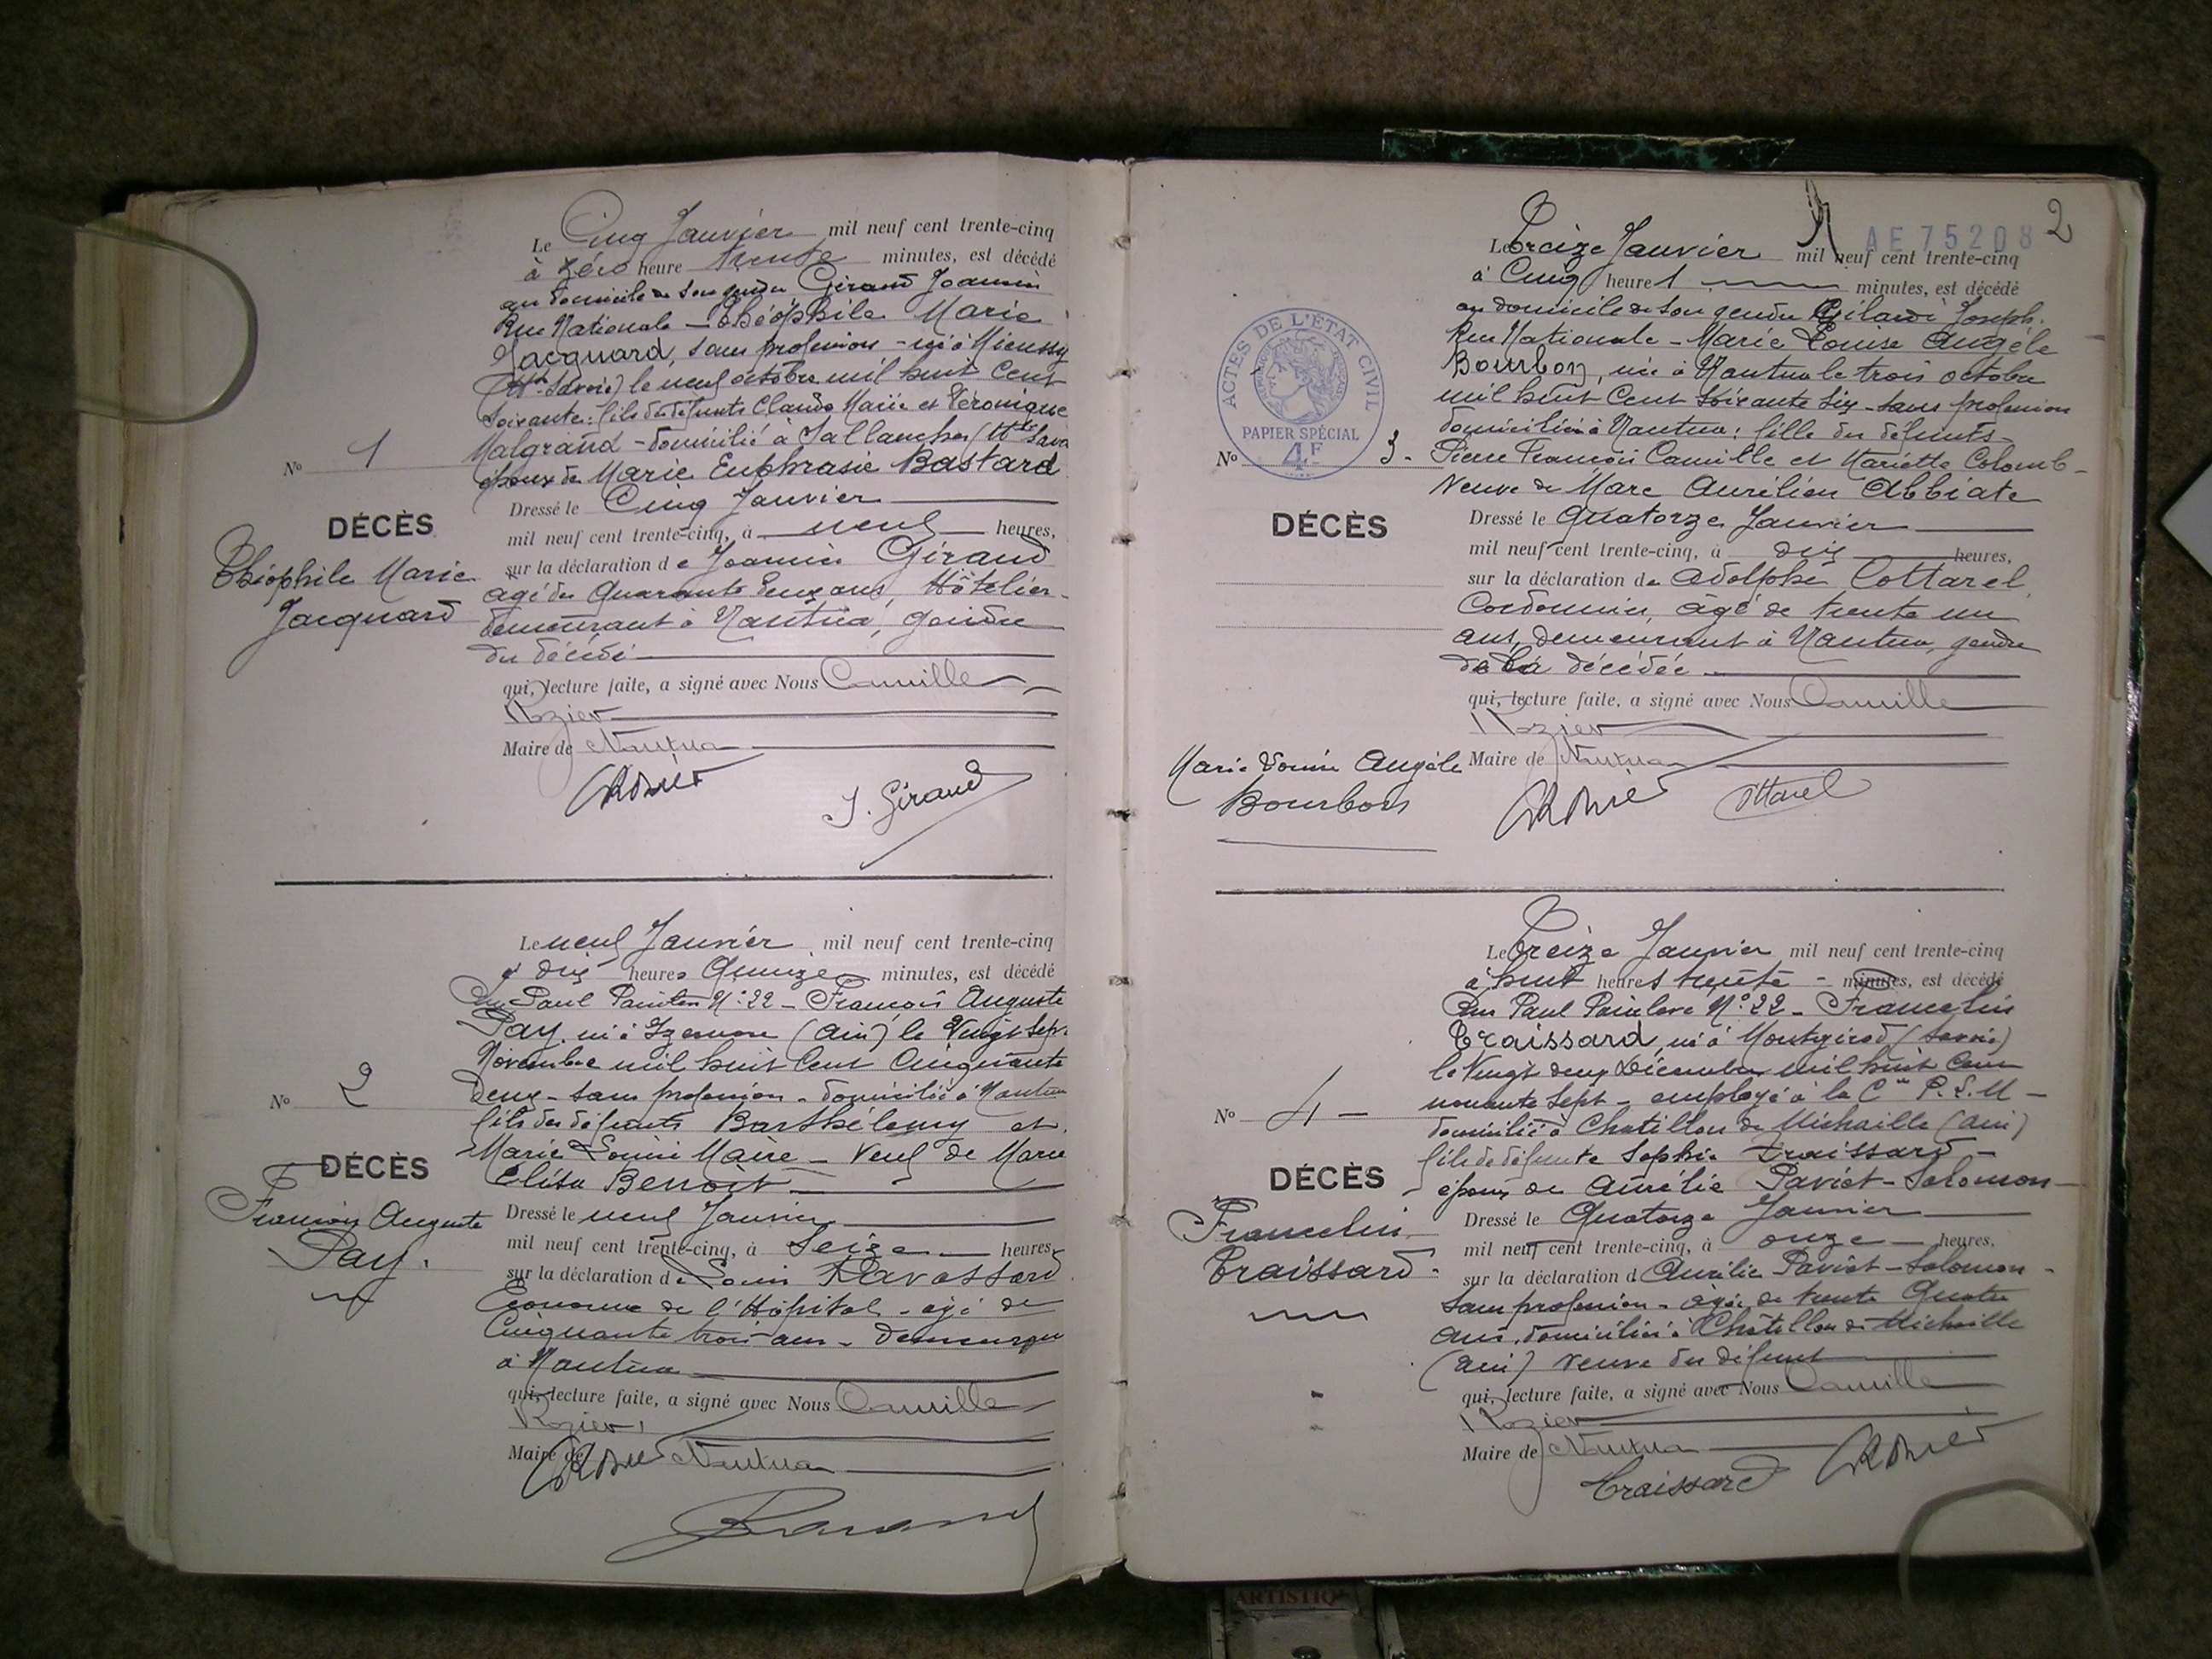 Le Cinq Janvier mil neuf cent trente-cinq
à zéro heure trente minutes, est décédé
au domicile de son gendre Giraud Joannin
Rue Nationale - Théophile Marie
Jacquard, sans profession - né à Mieussy
(Hte Savoie) le neuf octobre mil huit Cent
Soixante: fils de défunts Claude Marie et Véronique
Malgrand - domicilié à Sallanches (Hte Savo
époux de Marie Euphrasie Bastard
Nº 1
DÉCÈS
Théophile Marie
Jacquard
Dressé le Cinq Janvier
mil neuf cent trente-cinq, à neuf heures,
sur la déclaration de Joannin Giraud
âgé de Quarante deux ans, Hôtelier
demeurant à Nantua, gendre
du décédé
qui, lecture faite, a signé avec Nous Camille
Rozier
Maire de Nantua
CRozier
J. Giraud
Le neuf Janvier mil neuf cent trente-cinq
à dix heures Quinze minutes, est décédé
Rue Paul Painlevé Nº 22 - François Auguste
Pay, né à Izernore (Ain) le Vingt Sept
Novembre mil huit Cent Cinquante
Deux - sans profession - domicilié à Nantua
fils des défunts Barthélemy et
Marie Louise Maire - Veuf de Marie
Elisa Benoit
Nº 2
DÉCÈS
François Auguste
Pay.
Dressé le neuf Janvier
mil neuf cent trente-cinq, à Seize heures,
sur la déclaration de Louis Ravassard
Econome de l'Hôpital - âgé de
Cinquante trois ans - demeurant
à Nantua
qui, lecture faite, a signé avec Nous Camille
Rozier
Maire de Nantua
CRozier
AE 75208 2
Le Treize Janvier mil neuf cent trente-cinq
à Cinq heures minutes, est décédé
au domicile de son gendre Gilardi Joseph.
Rue Nationale - Marie Louise Angèle
Bourbon, née à Nantua le trois octobre
mil huit Cent Soixante Six - sans profession
domiciliée à Nantua: fille des défunts
Pierre François Camille et Mariette Colomb -
Veuve de Marc Aurélien Abbiate
ACTES DE L'ÉTAT CIVIL
PAPIER SPÉCIAL
4F
Nº 3.
DÉCÈS
Dressé le Quatorze Janvier
mil neuf cent trente-cinq, à dix heures,
sur la déclaration de Adolphe Cottarel
Cordonnier, âgé de trente un
ans, demeurant à Nantua, gendre
de la décédée
qui, lecture faite, a signé avec Nous Camille
Rozier
Maire de Nantua
Marie Louise Angèle
Bourbon
CRozier
Cottarel
Le Treize Janvier mil neuf cent trente-cinq
à huit heures trente - minutes, est décédé
Rue Paul Painlevé Nº 22 - Francelin
Traissard, né à Montgirod (Savoie)
le Vingt deux Décembre mil huit Cent
nonante Sept - employé à la Cie P.L.M -
domicilié à Chatillon de Michaille (Ain)
fils de défunte Sophie Traissard -
époux de Aurélie Paviot-Solomon -
Nº 4 -
DÉCÈS
Francelin
Traissard.
Dressé le Quatorze Janvier
mil neuf cent trente-cinq, à onze heures,
sur la déclaration d Aurélie Paviot-Solomon -
Sans profession - âgée de trente Quatre
ans, domiciliée à Châtillon de Michaille
(Ain) veuve du défunt
qui, lecture faite, a signé avec Nous Camille
Rozier
Maire de Nantua
Traissard
CRozier
ARTISTIQ